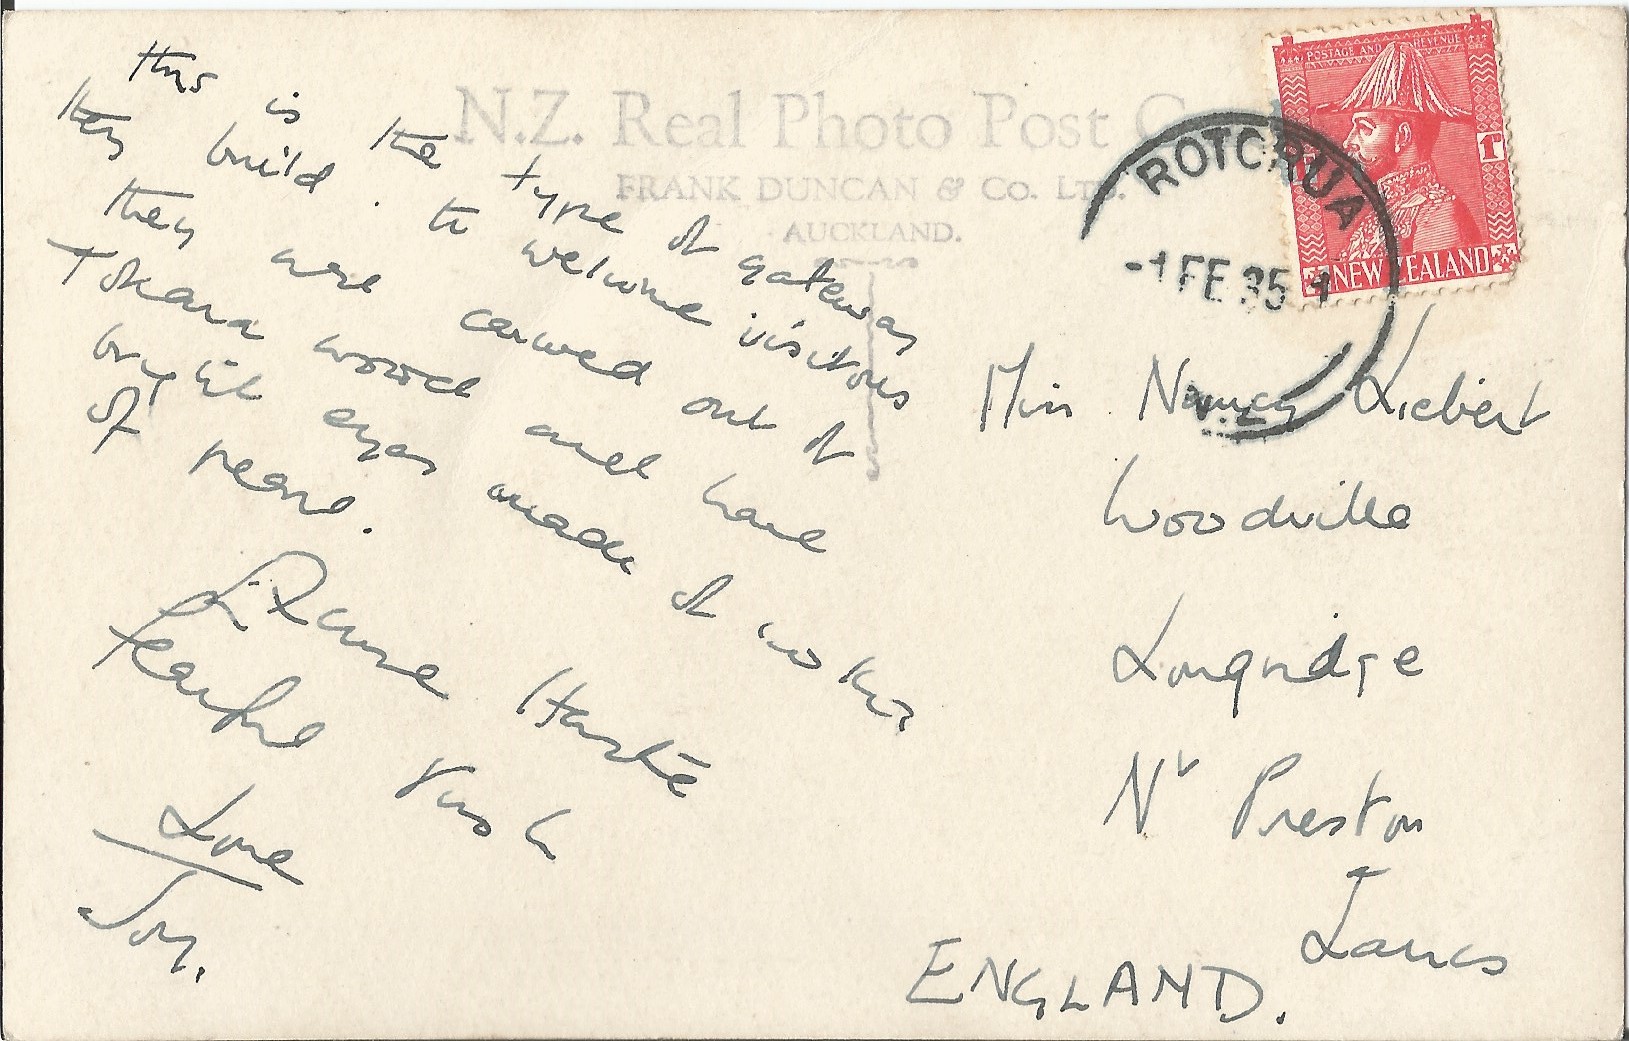 N.Z. Real Photo Post
FRANK DUNCAN & Co. LTD.
AUCKLAND.
POSTAGE AND REVENUE
1D
NEW ZEALAND
ROTORUA
-1 FE 35
N.Z.
This is the type of gateway
they build. to welcome visitors
they are carved out of
wood and have
bright eyes made of mother
of pearl.
Excuse Haste
Fearful rush
Love
Joy.
Miss Nancy Liebert
Woodville
Longridge
Nr Preston
Lancs
ENGLAND.